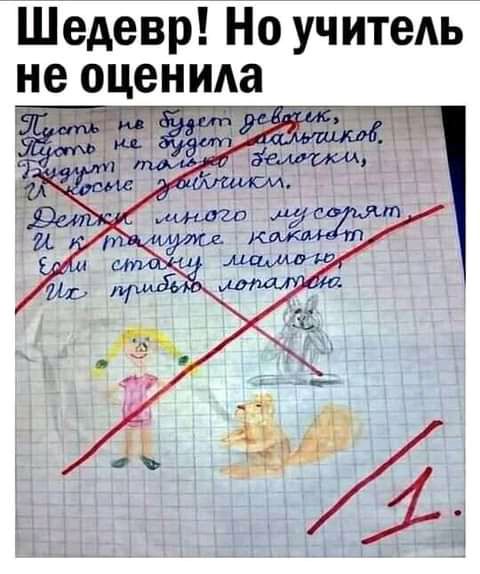 Шедевр! Но учитель
не оценила
Пусть не будет девочек,
Пусть не будет мальчиков.
Будут только белочки,
И косые зайчики.
Детки много мусорят
И к тамуже какают
Если стану мамою,
Их прибью лопатою.
1.